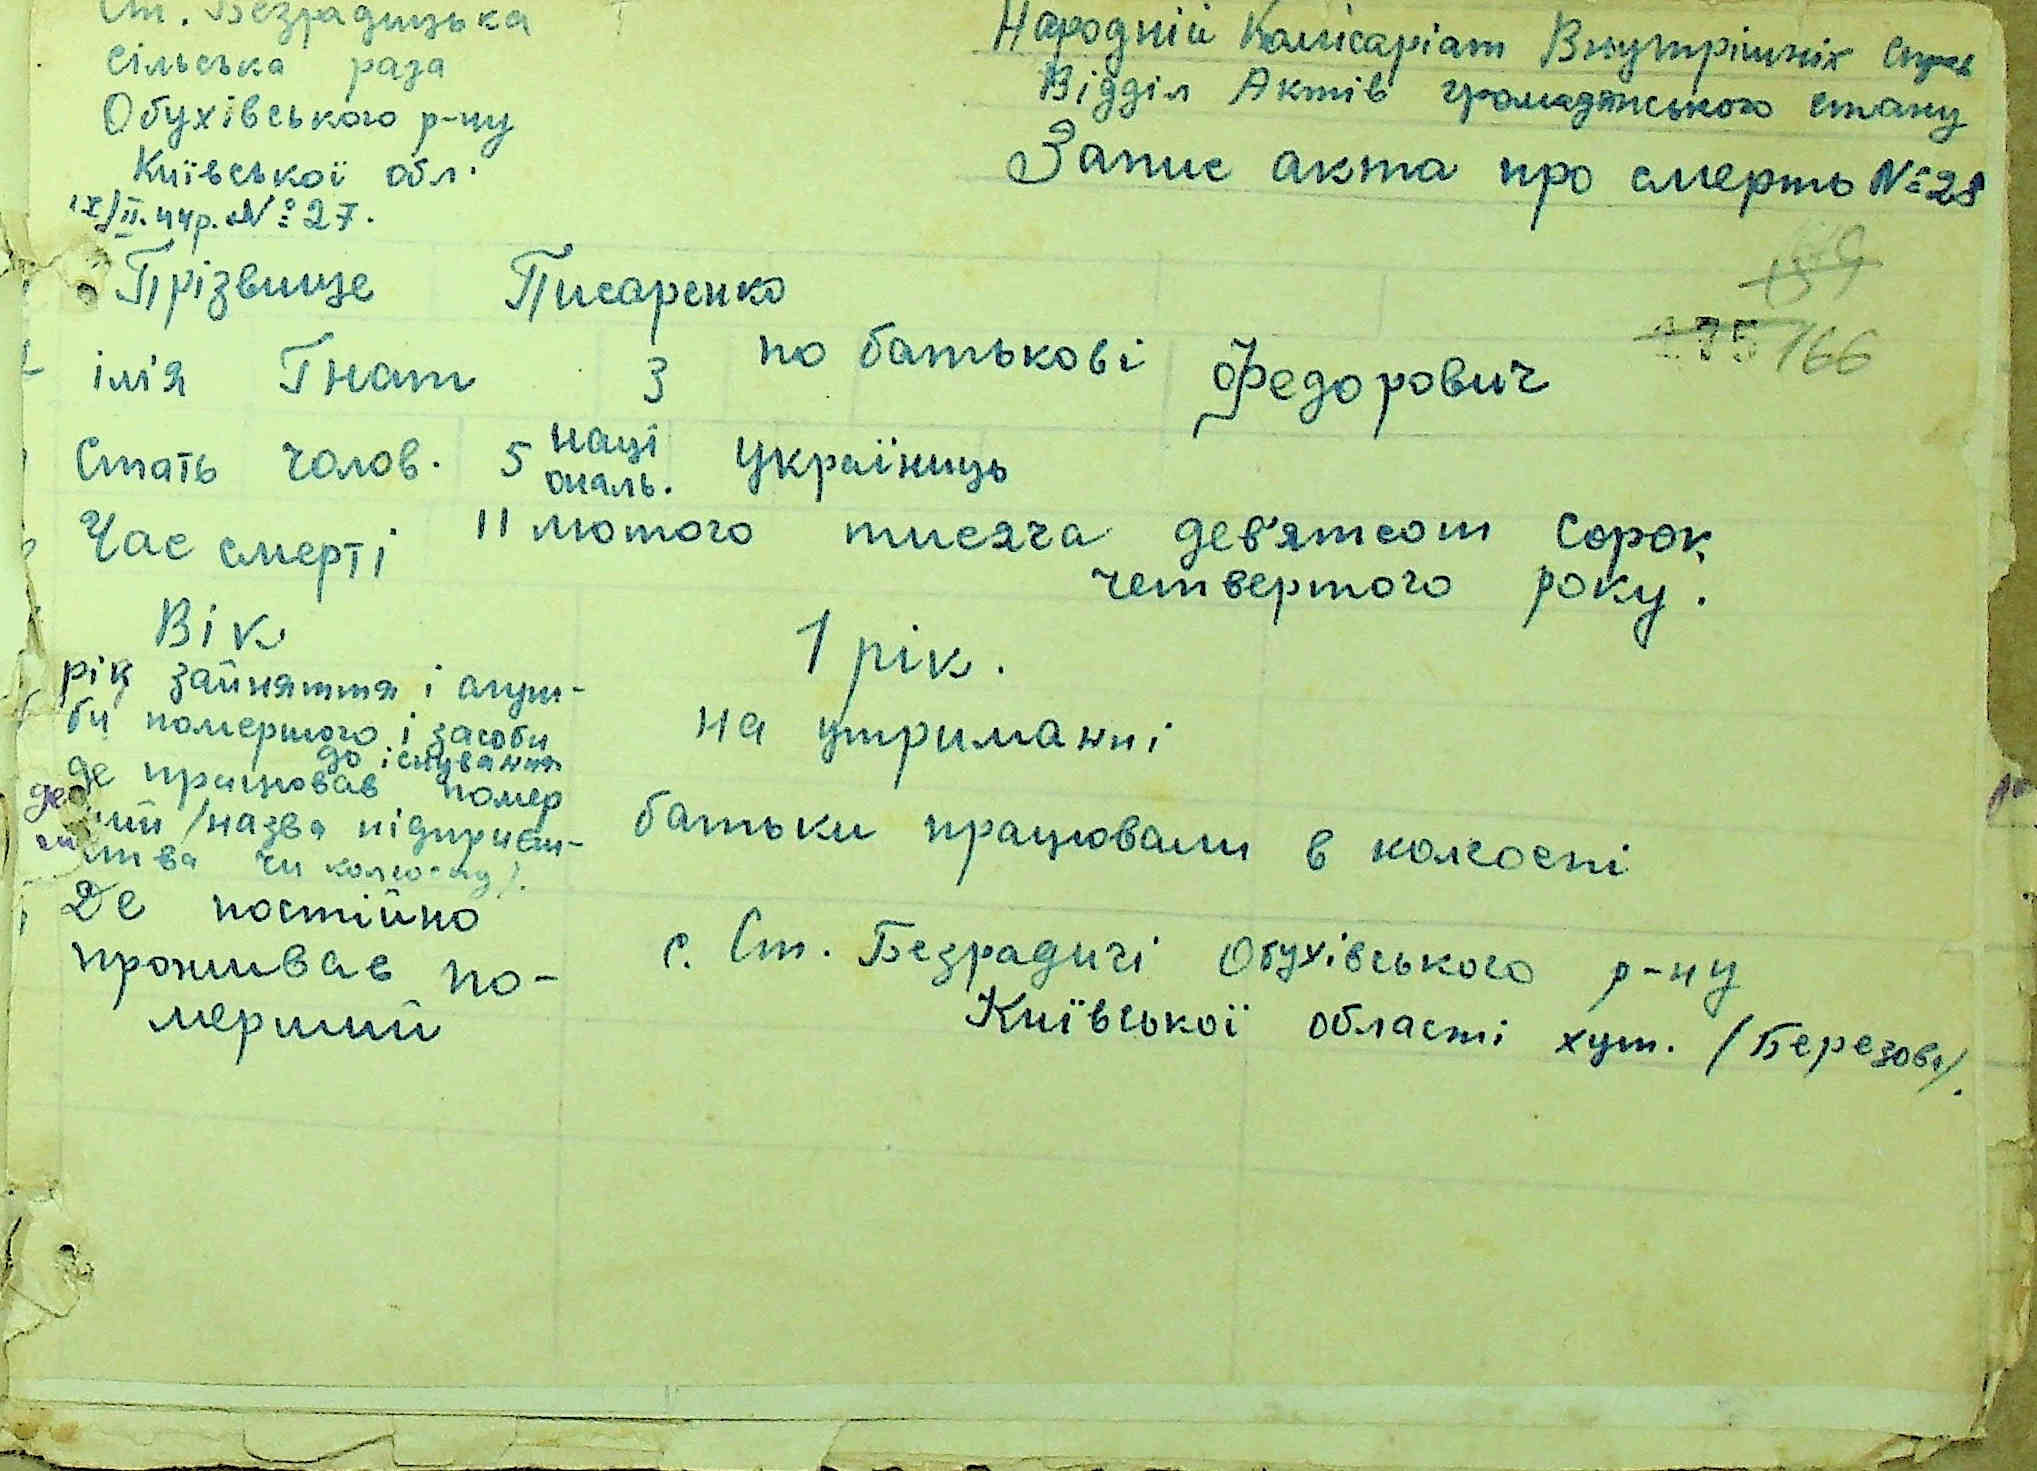 Ст. Безрадицька
сільська рада
Обухівського р-ну
Київської обл.
ІХ/ІІ.44р. № 27.
Народній Комісаріат Внутрішніх Справ
Відділ Актів громадянського стану
Запис акта про смерть № 28
166
Прізвище Писаренко
ім'я Гнат 3 по батькові Федорович
Стать чолов. 5 національ. Українець
Час смерті 11 лютого тисяча дев'ятсот сорок
четвертого року.
Вік 1 рік.
рід зайняття і служ-
би помершого і засоби
до існування
на утриманні
де працював помер
ший /назва підприєм-
ства чи колгоспу/.
батьки працювали в колгоспі
Де постійно
проживав по-
мерший
с. Ст. Безрадичі Обухівського р-ну
Київської області хут. /Березове/.